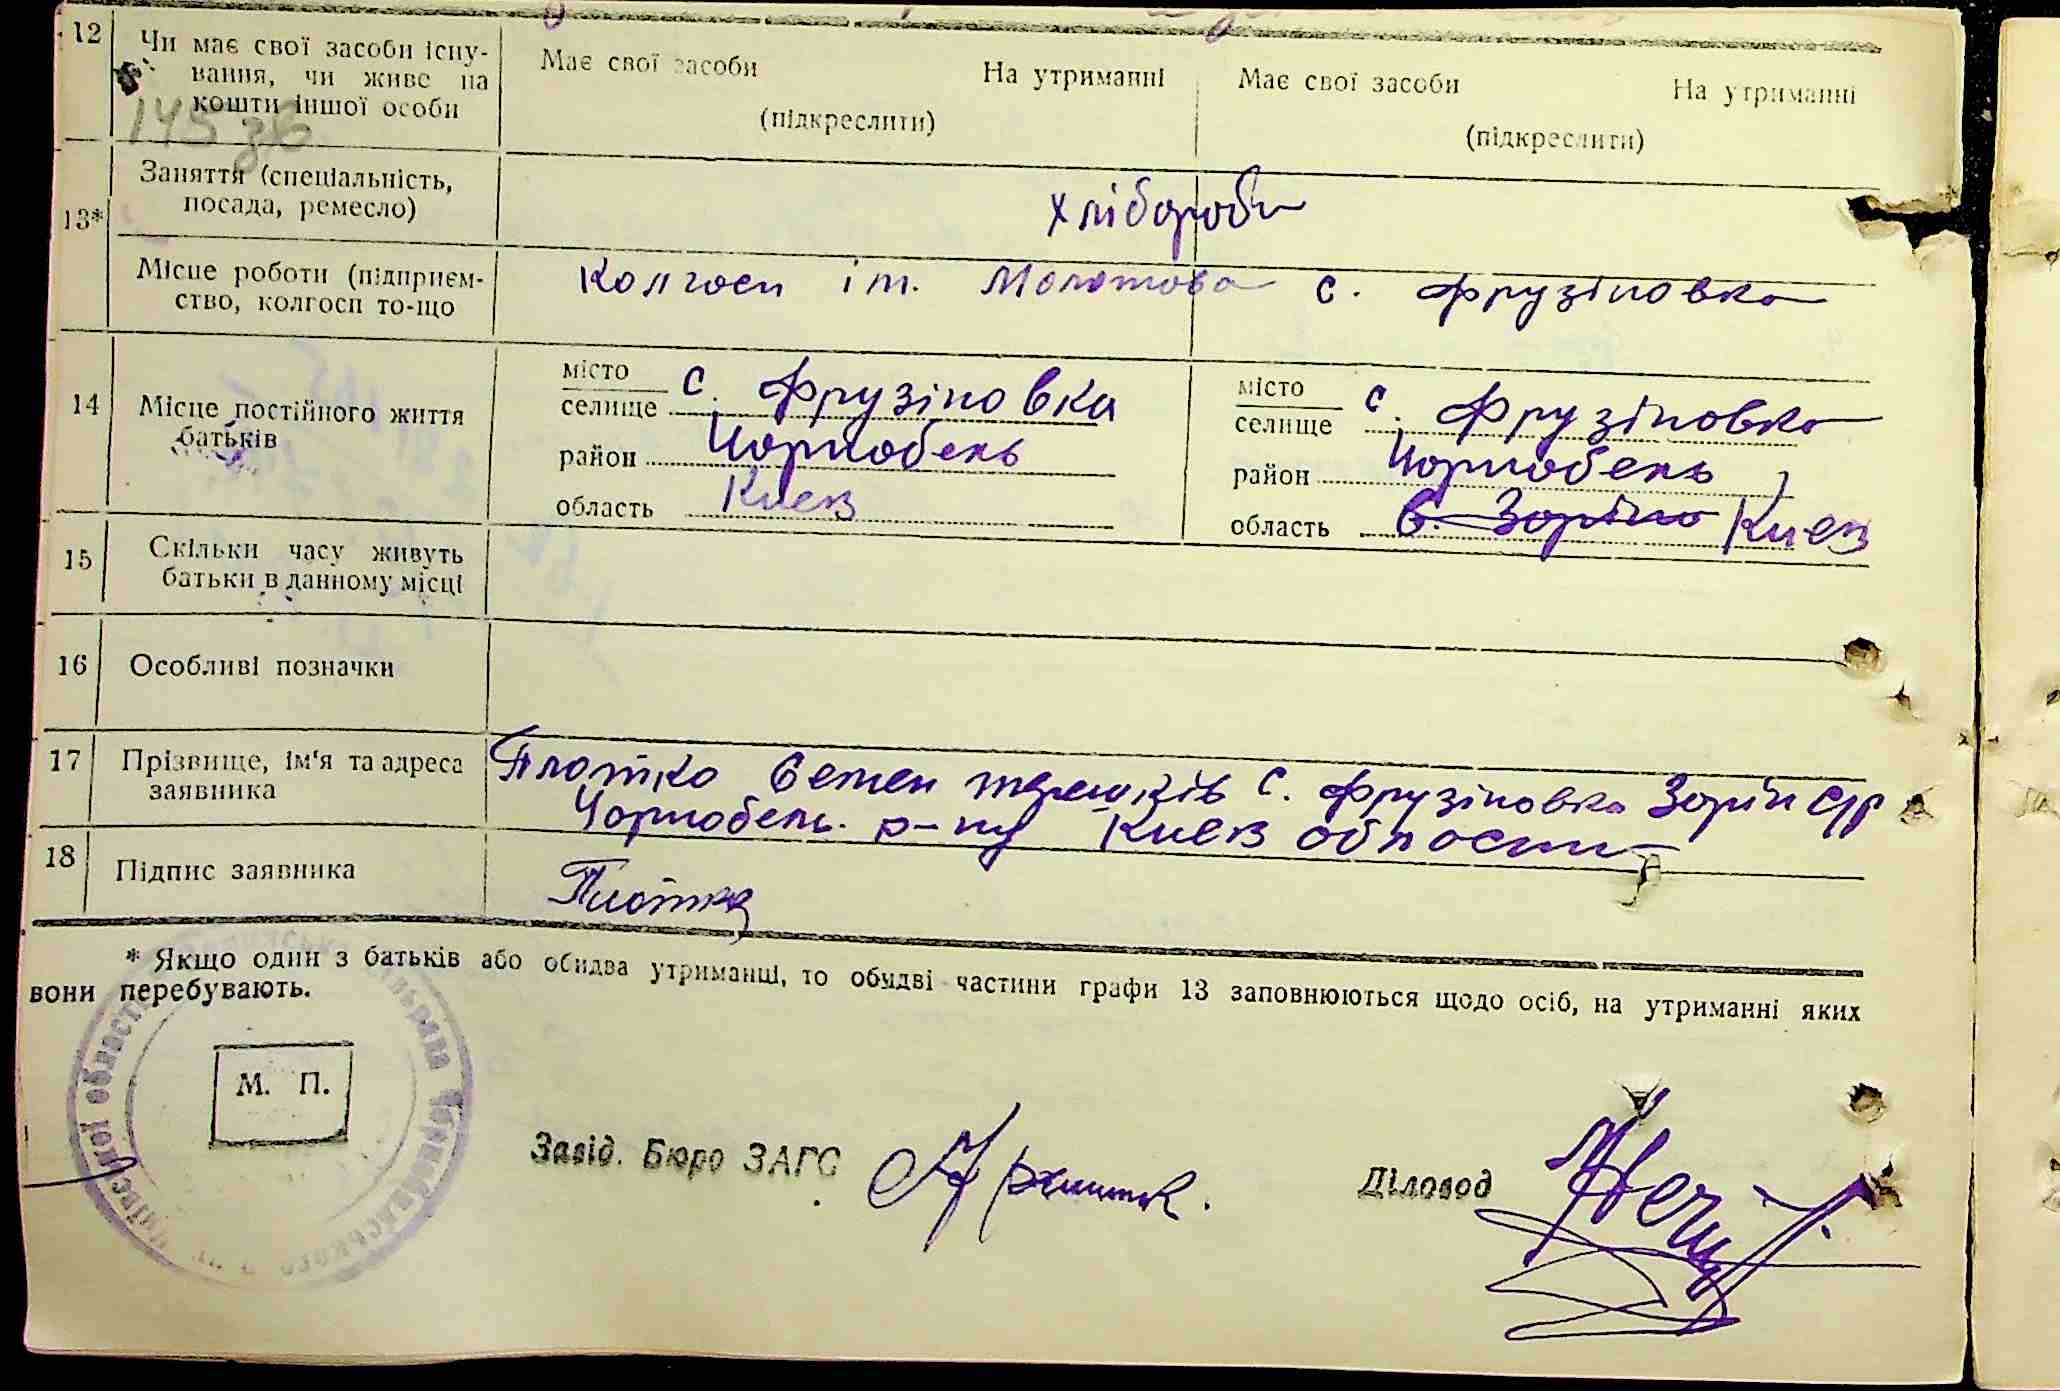 12 Чи має свої засоби існу-
вання, чи живе на
кошти іншої особи
Має свої засоби На утриманні Має свої засоби На утриманні
(підкреслити) (підкреслити)
145 зв
13* Заняття (спеціальність,
посада, ремесло)
хлібороби
Місце роботи (підприєм-
ство, колгосп то-що
Колгосп ім. Молотова с. Фрузіновка
14 Місце постійного життя
батьків
місто
селище с. Фрузіновка
район Чорнобель
область Киев
місто
селище с. Фрузіновка
район Чорнобель
область с. Зоріно Киев
15 Скільки часу живуть
батьки в данному місці
16 Особливі позначки
17 Прізвище, ім'я та адреса
заявника
Плотко Семен с. Фрузіновка Зорін с/р
Чорнобель. р-ну Киев области
18 Підпис заявника
Плотко
* Якщо один з батьків або обидва утриманці, то обидві частини графи 13 заповнюються щодо осіб, на утриманні яких
вони перебувають.
М. П.
Завід. Бюро ЗАГС
Діловод